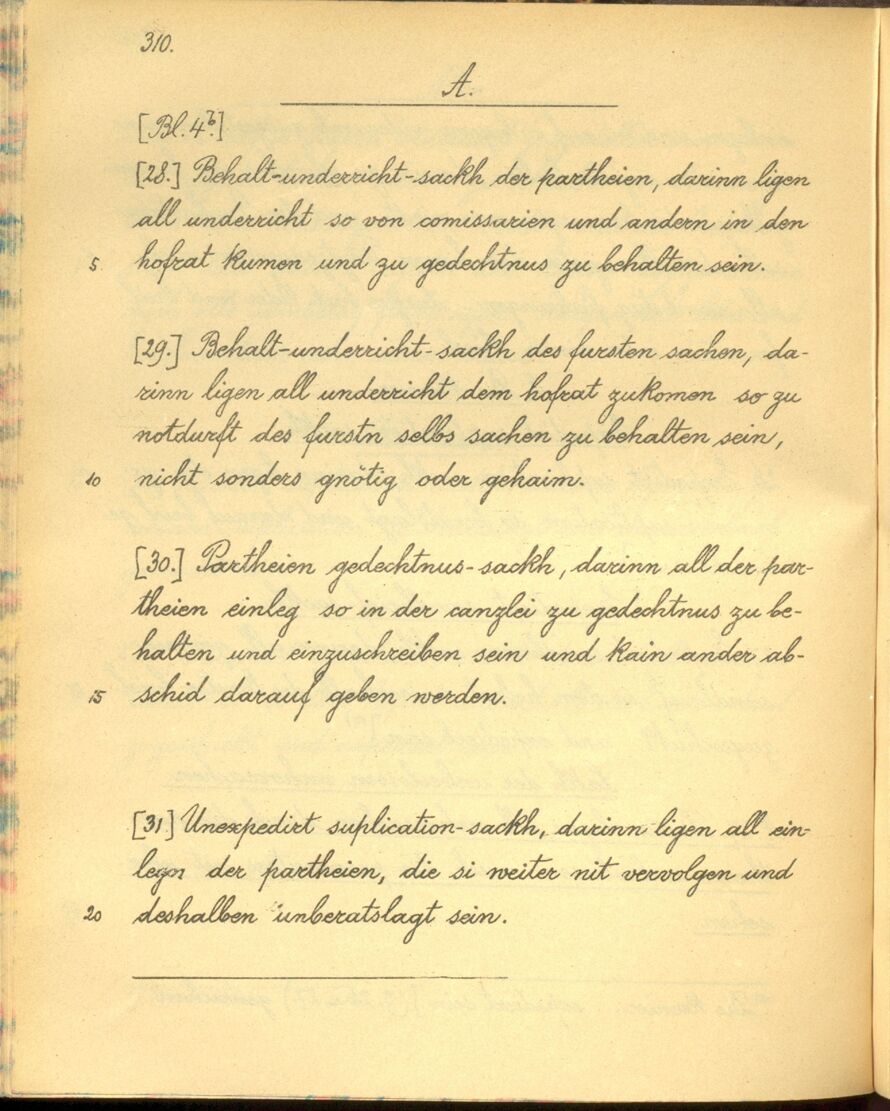 310.
A.
[Bl. 4b.]
[28.] Behalt-underricht-sackh der partheien, darinn ligen
all underricht so von comissarien und andern in den
5 hofrat kumen und zu gedechtnus zu behalten sein.
[29.] Behalt-underricht-sackh des fursten sachen, da-
rinn ligen all underricht dem hofrat zukomen so zu
notdurft des furstn selbs sachen zu behalten sein,
10 nicht sonders gnötig oder gehaim.
[30.] Partheien gedechtnus-sackh, darinn all der par-
theien einleg so in der canzlei zu gedechtnus zu be-
halten und einzuschreiben sein und kain ander ab-
15 schid darauf geben werden.
[31] Unexpedirt suplication-sackh, darinn ligen all ein-
legn der partheien, die si weiter nit vervolgen und
20 deshalben unberatslagt sein.